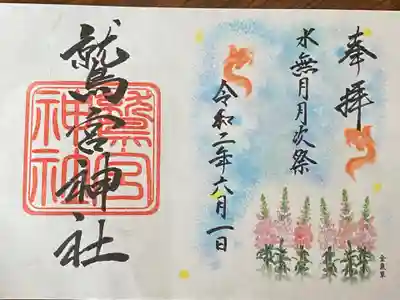 奉拝
水無月月次祭
令和二年六月一日
鷲宮神社
鷲宮神社
金魚草